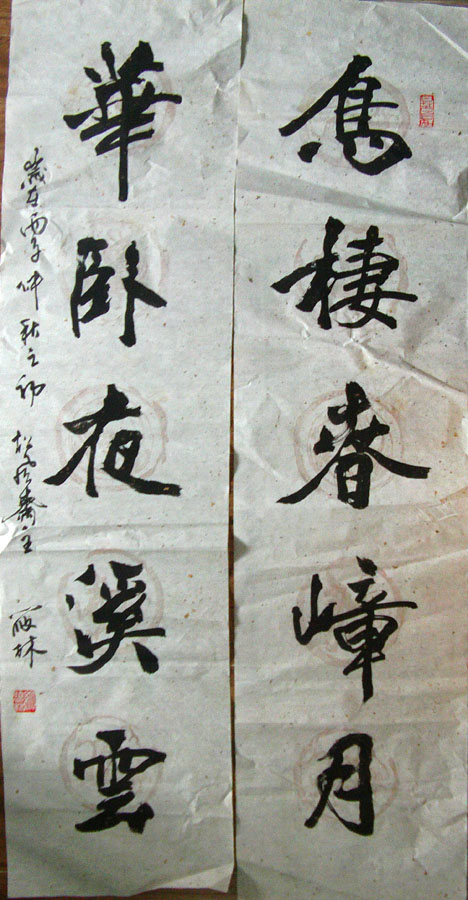 鳥棲春嶂月
華臥夜溪雲
歲在丙子仲秋之初 松風齋主 林